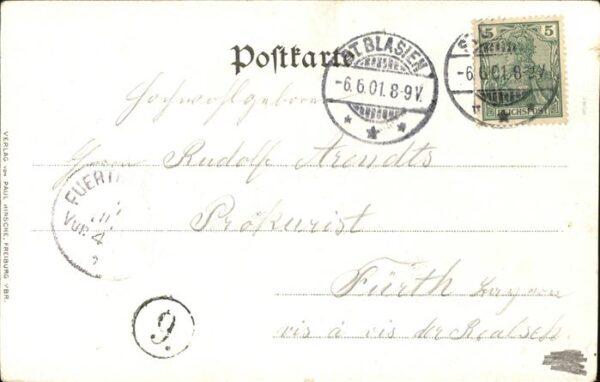 Postkarte
ST. BLASIEN
-6.6.01.8-9V.
ST
-6.6.01.8-9V.
5 5
REICHSPOST
Hochwohlgeboren
Herrn Rudolf Arendts
Prokurist
Fürth Bayern
vis à vis der Realsch.
FUERTH
VII.
Vor. 4
9.
VERLAG VON PAUL HINSCHE, FREIBURG I/BR.